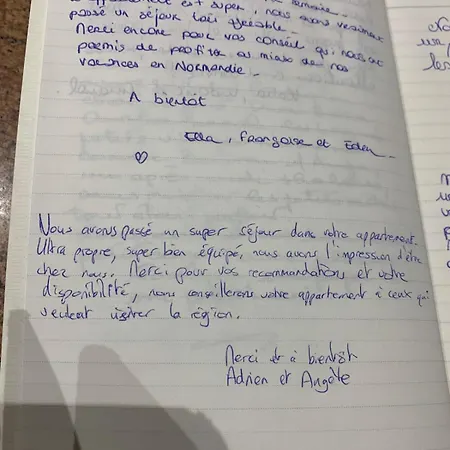 est super, nous avons vraiment
passé un séjour très agréable.
Merci encore pour vos conseil qui nous ont
permis de profiter au mieux de nos
vacances en Normandie.
A bientôt
Ella, Françoise et Eden
♡
Nous avons passé un super séjour dans votre appartement.
Ultra propre, super bien équipé, nous avons l'impression d'être
chez nous. Merci pour vos recommandations et votre
disponibilité, nous conseillerons votre appartement à ceux qui
veulent visiter la région.
Merci et à bientôt
Adrien et Angèle